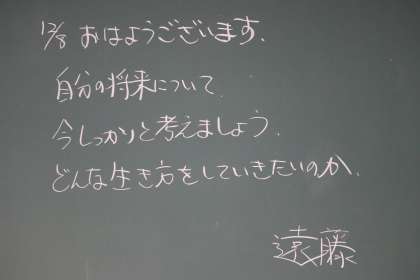 12/8 おはようございます.
自分の将来について.
今しっかりと考えましょう.
どんな生き方をしていきたいのか.
遠藤